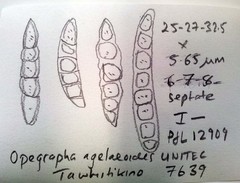 25-27-32.5
×
5-6.5 µm
6-7-8-
septate
I-
PfL 12909
Opegrapha agelaeoides UNITEC
Tawhitikino 7639